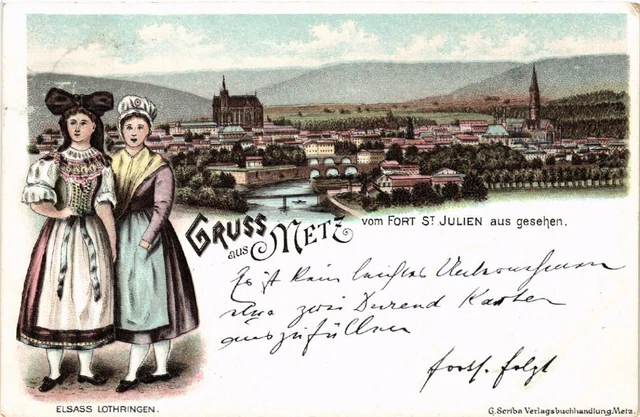 Gruss
aus Metz
vom FORT ST JULIEN aus gesehen.
Es ist kein leichtes Unternehmen
etwa zwei Dutzend Karten
auszufüllen
forts. folgt
ELSASS LOTHRINGEN.
G. Scriba Verlagsbuchhandlung, Metz.